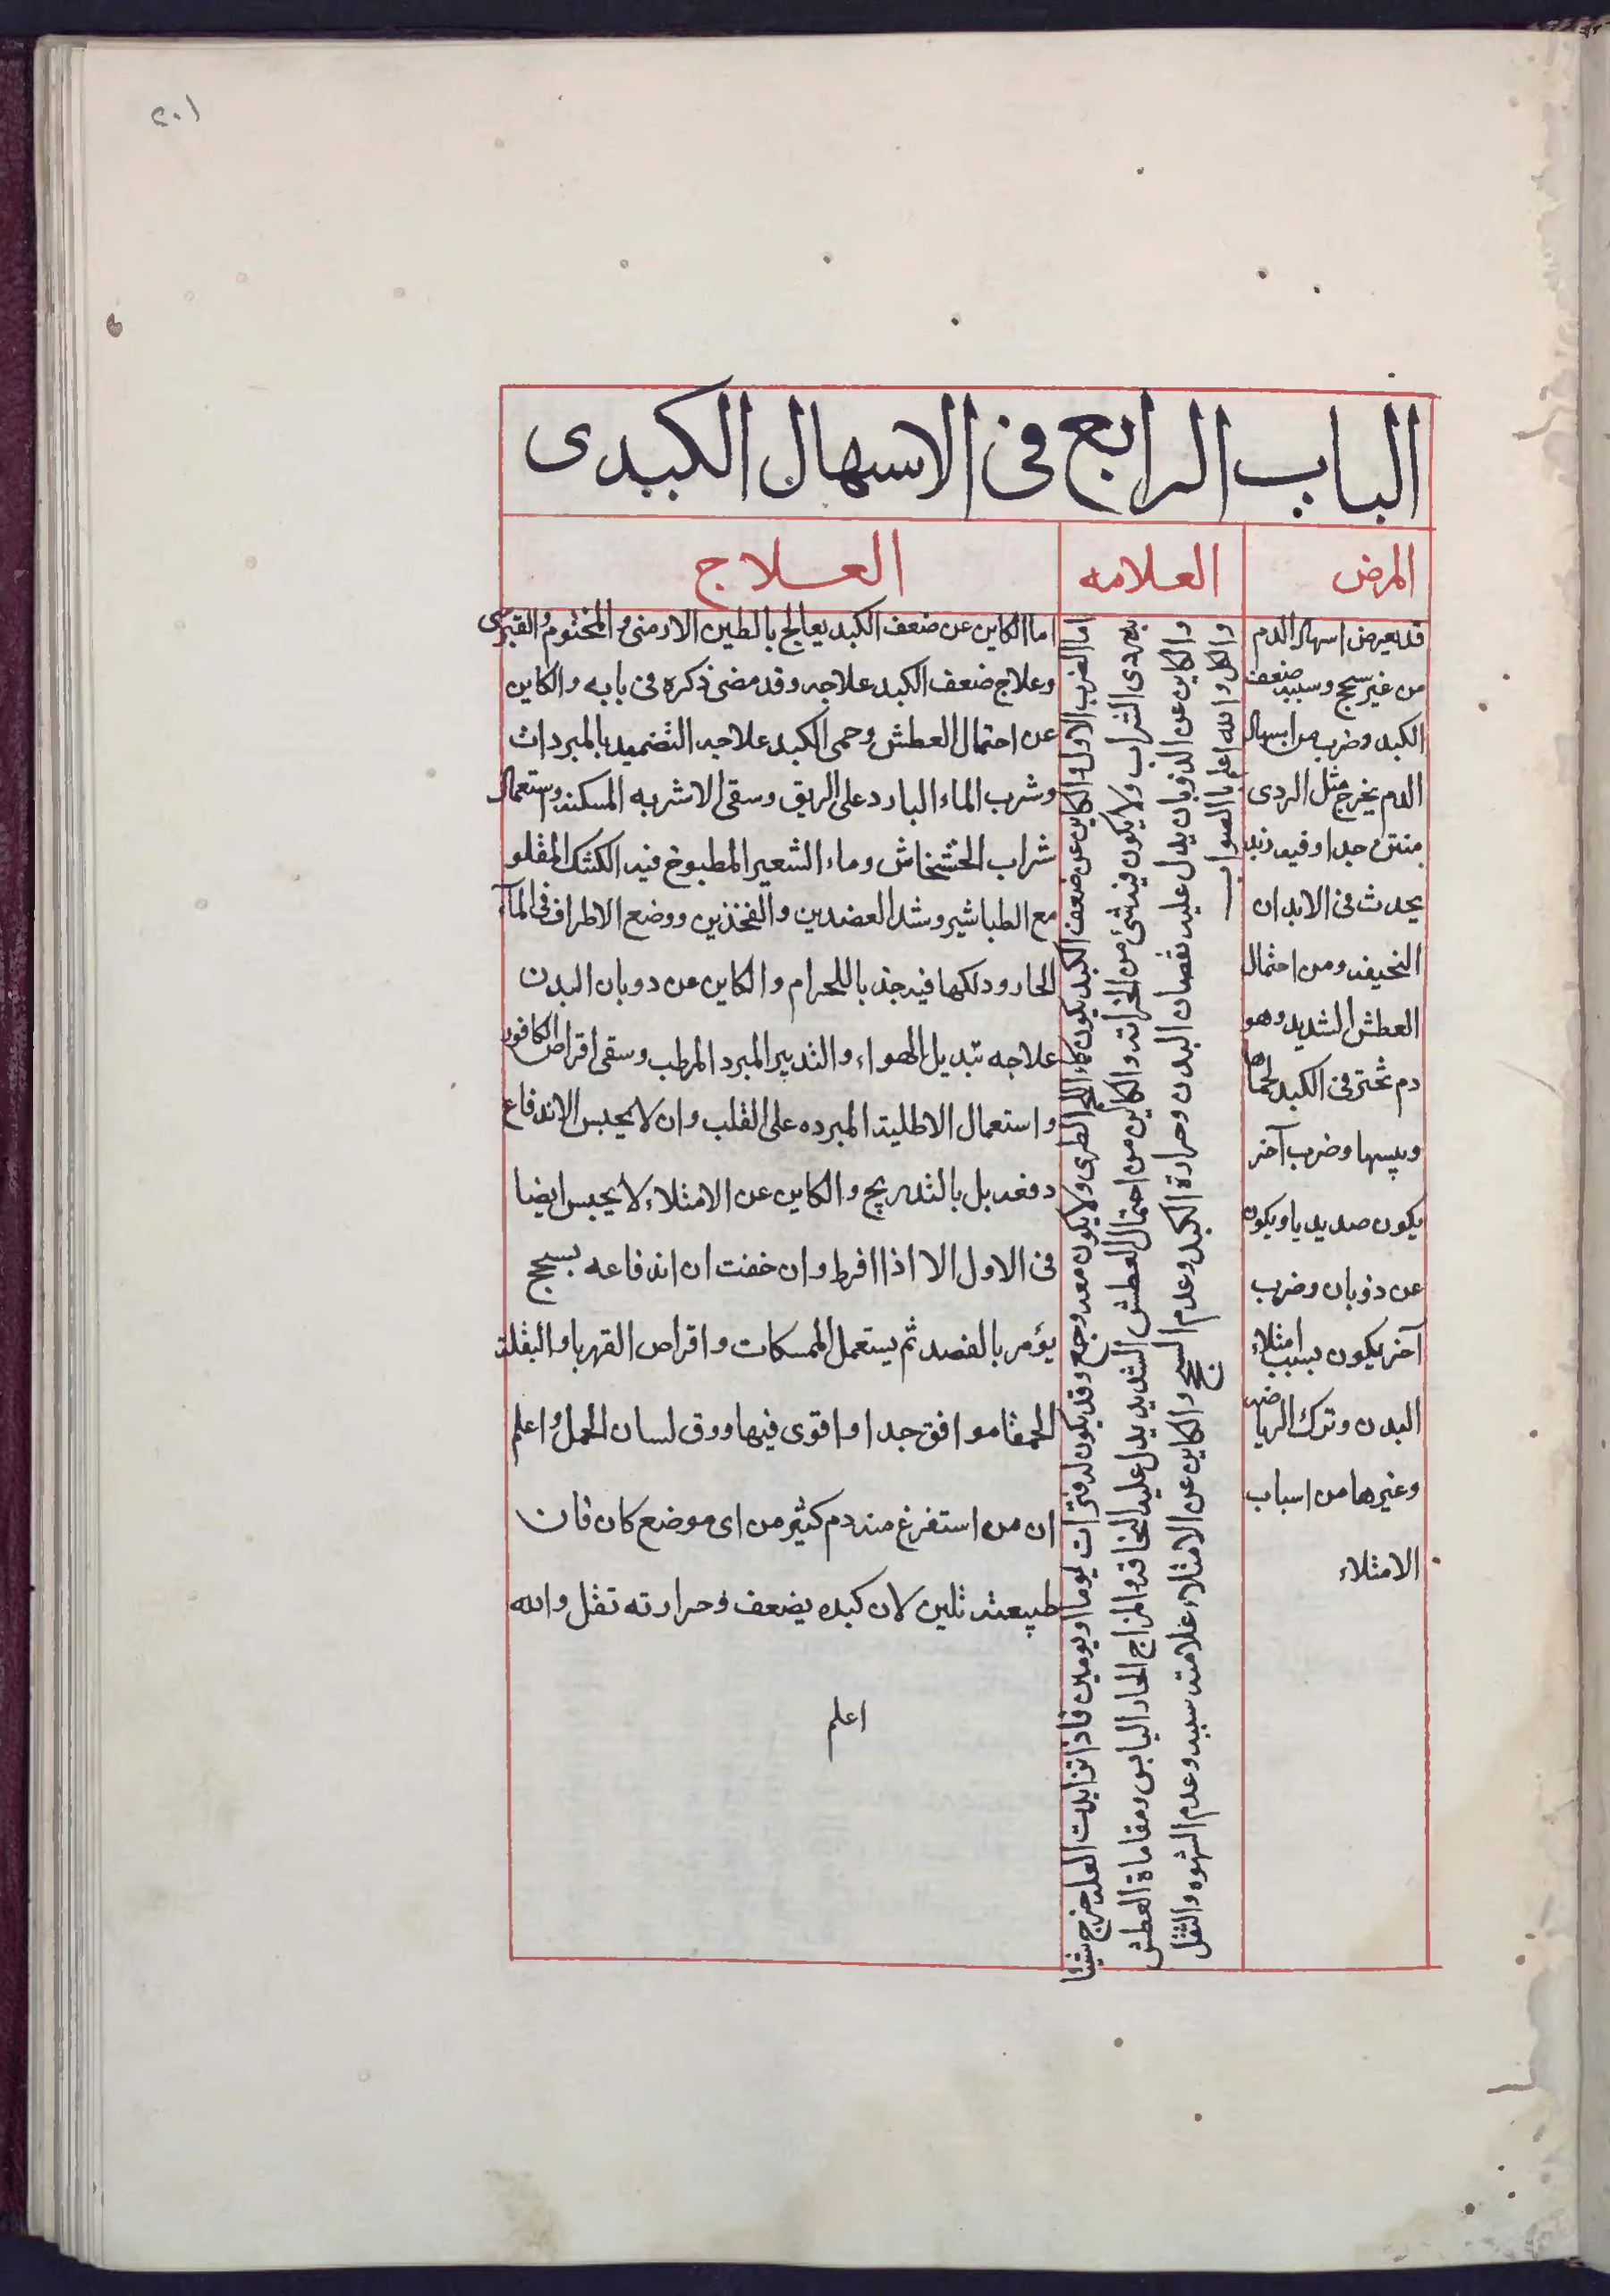 ٢٠١
الباب الرابع فى الاسهال الكبدى
المرض
العلامه
العلاج
قد يعرض اسهال الدم
من غير سحج وسببه ضعف
الكبد وضرب من اسهال
الدم يخرج مثل الردى
منتن جدا وفيه زبد
يحدث فى الابدان
النحيفه ومن احتمال
العطش الشديد وهو
دم يحترق فى الكبد لحماها
ويبسها وضرب آخر
يكون صديديا ويكون
عن ذوبان وضرب
آخر يكون بسبب امتلاء
البدن وترك الرياضه
وغيرها من اسباب
الامتلاء
اما الضرب الاول والكاين عن ضعف الكبد يكون كماء اللحم الطرى ولا يكون معه وجع وقد يكون له فترات يوما او يومين فاذا تزايدت العله خرج شيئا
يشبه دردى الشراب ولا يكون فيه شئ من الخراته والكاين من احتمال العطش الشديد يدل عليه النحافه والمزاج الحار اليابس ومقاماة العطش
والكاين عن الذوبان يدل عليه نقصان البدن وحرارة الكبد وعدم السحج والكاين عن الامتلاء علامته سببه وعدم الشهوه والثقل
والكل والله اعلم بالصواب
اما الكاين عن ضعف الكبد يعالج بالطين الارمنى والمختوم والقبرصى
وعلاج ضعف الكبد علاجه وقد مضى ذكره فى بابه والكاين
عن احتمال العطش وحمى الكبد علاجه التضميد بالمبردات
وشرب الماء البارد على الريق وسقى الاشربه المسكنه واستعمال
شراب الخشخاش وماء الشعير المطبوخ فيه الكشك المقلو
مع الطباشير وشد العضدين والفخذين ووضع الاطراف فى المآء
الحار ودلكها فيه جذبا للحرام والكاين عن دوبان البدن
علاجه تبديل الهواء والتدبير المبرد المرطب وسقى اقراص الكافور
واستعمال الاطلية المبرده على القلب وان لا يحبس الاندفاع
دفعه بل بالتدريج والكاين عن الامتلاء لا يحبس ايضا
فى الاول الا اذا افرط وان خفت ان اندفاعه يسحج
يؤمر بالفصد ثم يستعمل الممسكات واقراص القهربا والبقلة
الحمقا موافق جدا واقوى فيها ورق لسان الحمل واعلم
ان من استفرغ منه دم كثير من اى موضع كان فان
طبيعته تلين لان كبده يضعف وحرارته تقل والله
اعلم